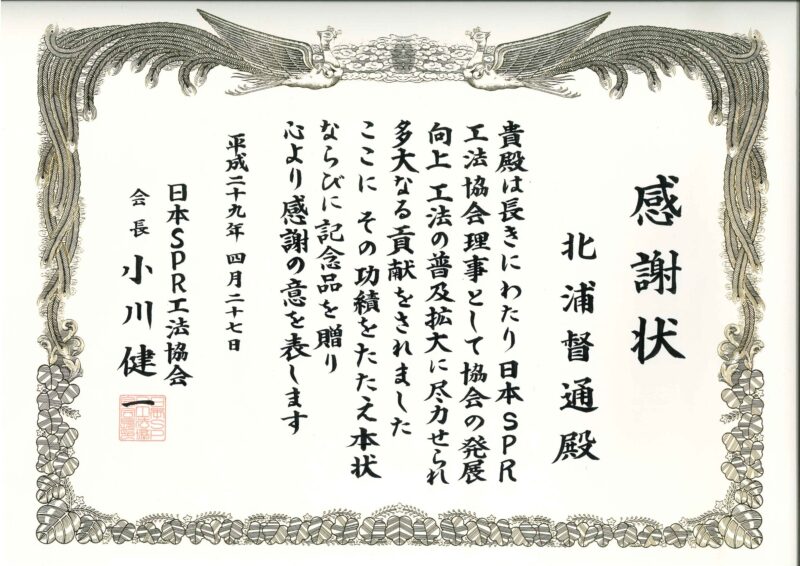 感謝状
北浦督通殿
貴殿は長きにわたり日本SPR
工法協会理事として協会の発展
向上 工法の普及拡大に尽力せられ
多大なる貢献をされました
ここに その功績をたたえ本状
ならびに記念品を贈り
心より感謝の意を表します
平成二十九年 四月二十七日
日本SPR工法協会
会長 小川健一